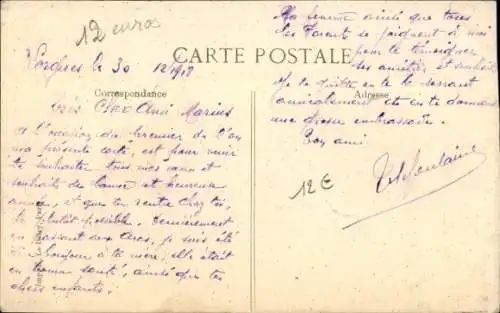 12 euros
CARTE POSTALE
le 30 12/1918
Correspondance
Très Cher Ami Marius
A l'occasion du Premier de l'an
ma présente carte, est pour venir
te souhaiter tous mes vœux et
souhaits de bonne et heureuse
année, et que tu rentre chez toi,
le plutôt possible. Dernièrement
en passant aux Arcs, je suis été
Bonjour à ta mère, elle était
en bonne santé, ainsi que tes
chers enfants.
Ma femme ainsi que tous
les Parent se joignent à moi
pour te témoigner
ses amitiés et
Adresse
Je te quitte en te serrant
amicalement et en te donnant
une grosse embrassade.
Ton ami
12 €